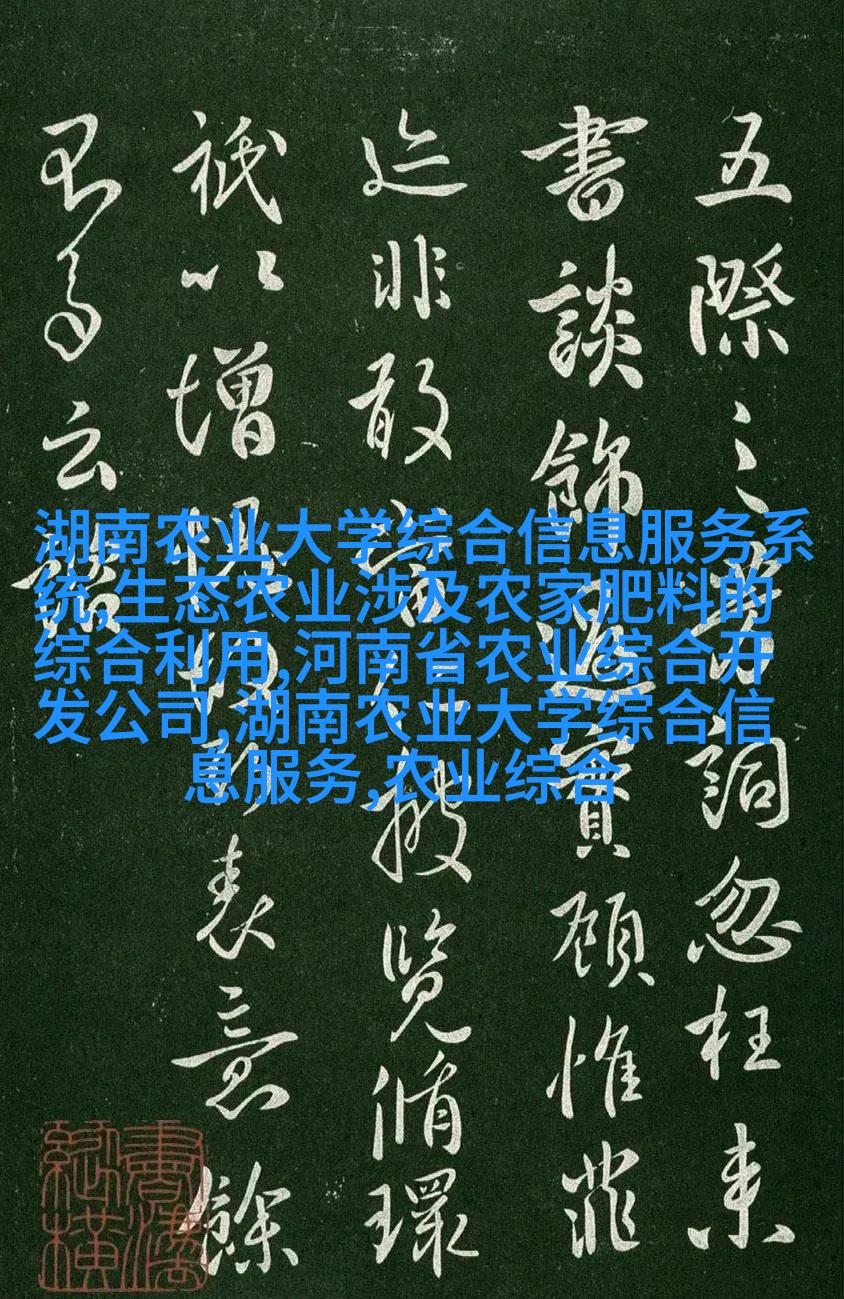 湖南农业大学综合信息服务系
统,生态农业涉及农家肥料的
综合利用,河南省农业综合开
发公司,湖南农业大学综合信
息服务,农业综合
五際之詞忽枉来
書談飾過實顧惟菲
迹非敢當披覽循環
祇以增愧何表意餘
云